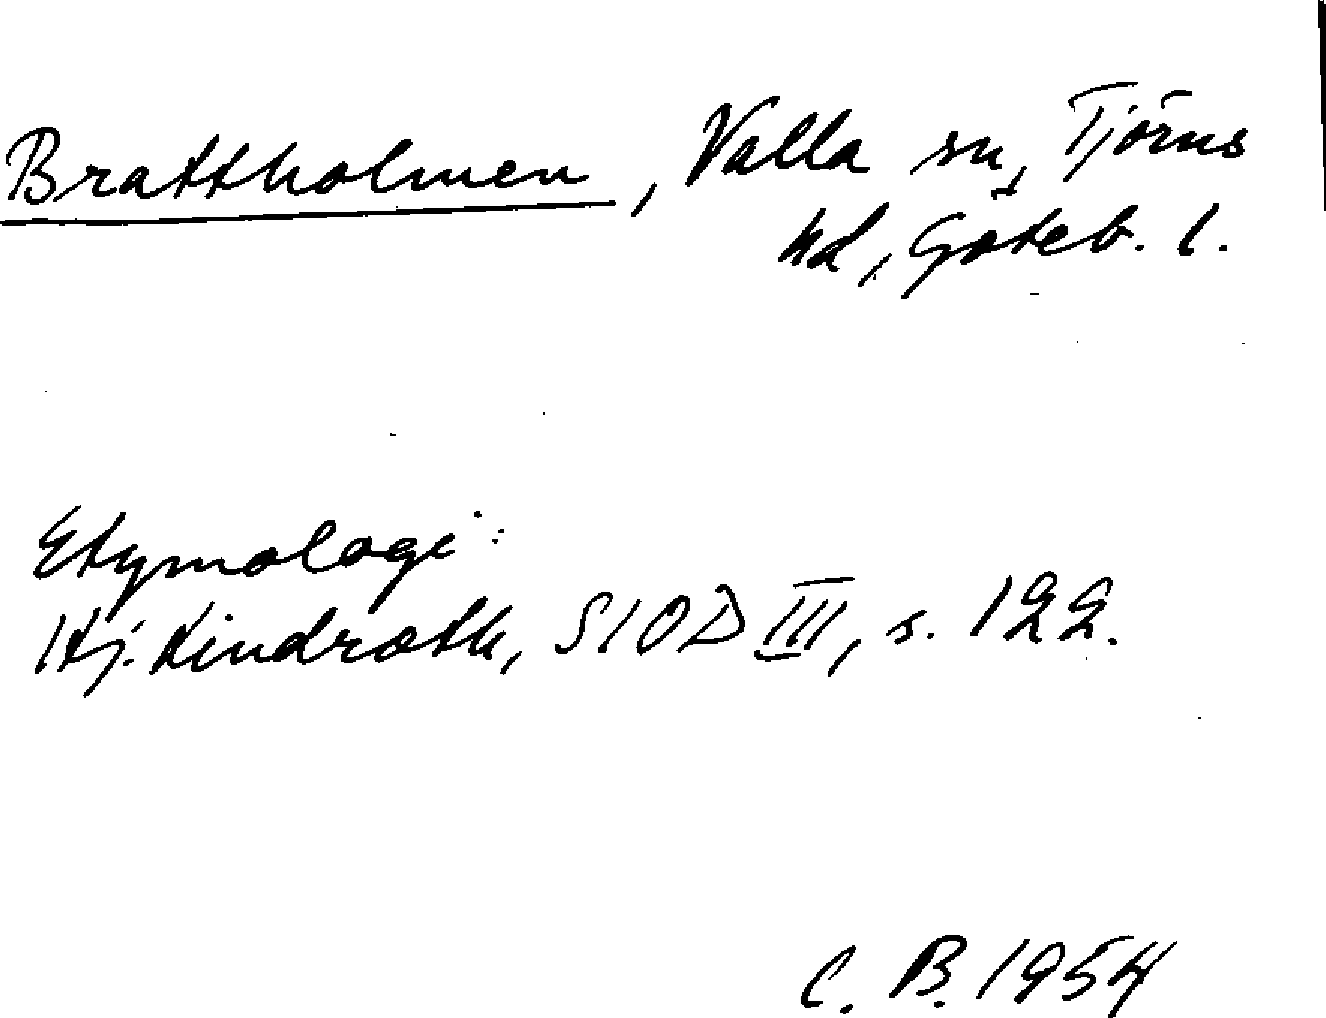 Brattholmen, Valla sn, Tjörns
hd, Göteb. l.
Etymologi:
Hj. Lindroth, SIOD III, s. 122.
C. B. 1954